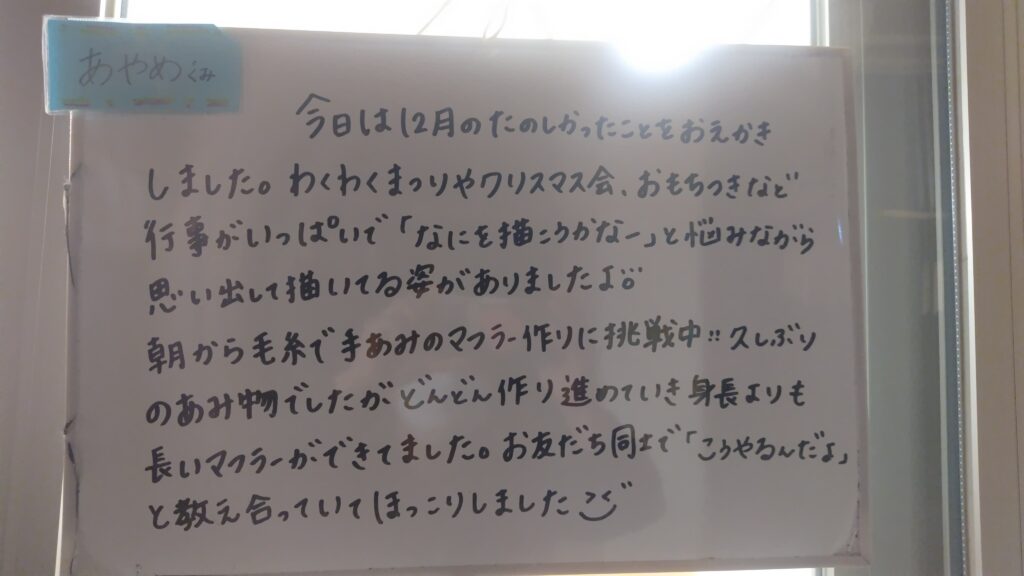 あやめくみ
今日は12月のたのしかったことをおえかき
しました。わくわくまつりやクリスマス会、おもちつきなど
行事がいっぱいで「なにを描こうかなー」と悩みながら
思い出して描いてる姿がありましたよ!!
朝から毛糸で手あみのマフラー作りに挑戦中!! 久しぶり
のあみ物でしたがどんどん作り進めていき身長よりも
長いマフラーができてました。お友だち同士で「こうやるんだよ」
と教え合っていてほっこりしました